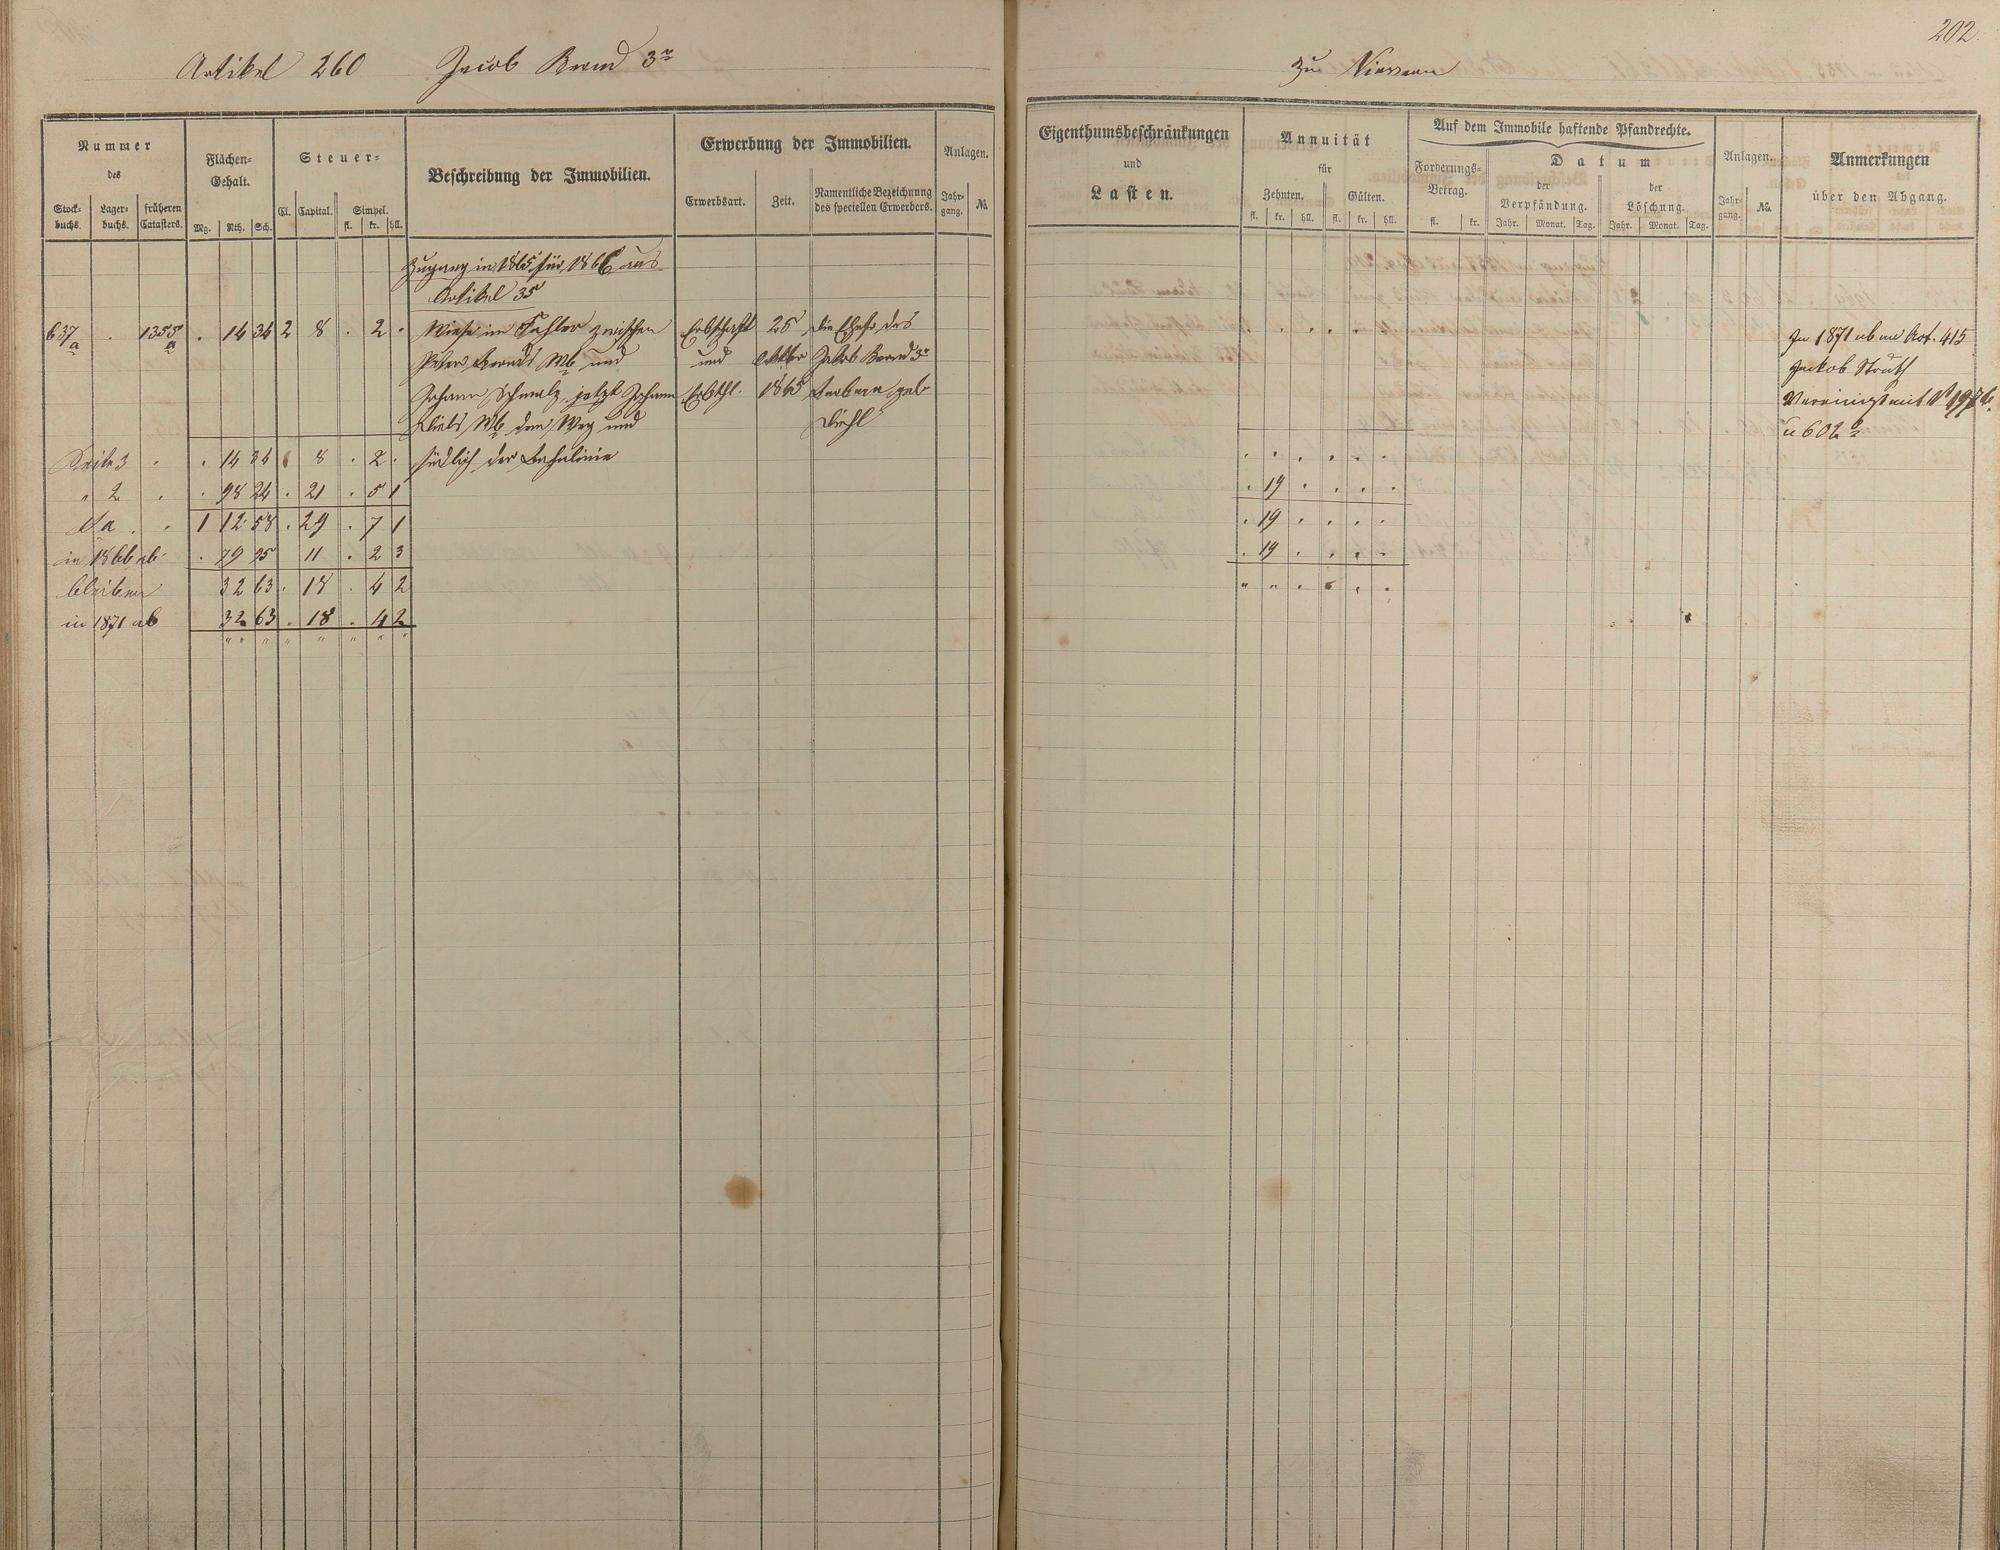 202.
Artikel 260 Jacob Bernd 3r
zu
Nummer
des
Stock-
buchs.
Lager-
buchs.
früheren
Catasters.
Flächen-
Gehalt.
Mg. Rth. Sch.
Steuer-
Cl. Capital. Simpel.
fl. kr. hll.
Beschreibung der Immobilien.
Erwerbung der Immobilien.
Erwerbsart. Zeit. Namentliche Bezeichnung
des speciellen Erwerbers.
Anlagen.
Jahr-
gang. No.
Eigenthumsbeschränkungen
und
Lasten.
Annuität
für
Zehnten. Gülten.
fl. kr. hll. fl. kr. hll.
Auf dem Immobile haftende Pfandrechte.
Forderungs-
Betrag.
fl. kr.
Datum
der
Verpfändung.
Jahr. Monat. Tag.
der
Löschung.
Jahr. Monat. Tag.
Anlagen.
Jahr-
gang. No.
Anmerkungen
über den Abgang.
Zugang in 1865 für 1866 aus
Artikel 35
637a . 1355a . 14 34 2 8 . 2 . Wiese im Fahler zwischen Erbschaft 25 die Ehefr. des
Peter Bernds Wb und und Oktbr Jakob Bernd 3r
Johann Schmalz, jetzt Johann Erbthl. 1865 geb
Diels Wb dem Weg und Diehl
Seite 3 . . 14 34 8 . 2 . südlich der Bahnlinie
" 2 . . 98 24 . 21 . 5 1 . 19 . . . .
Sa . . 1 12 58 . 29 . 7 1 . 19 . . . .
in 1866 ab . 79 95 11 . 2 3 . 19 . . . .
bleiben 32 63 . 18 . 4 2
in 1871 ab 32 63 . 18 . 4 2
In 1871 ab an Art. 415
Jakob Struth
Vereinigt mit
u 602